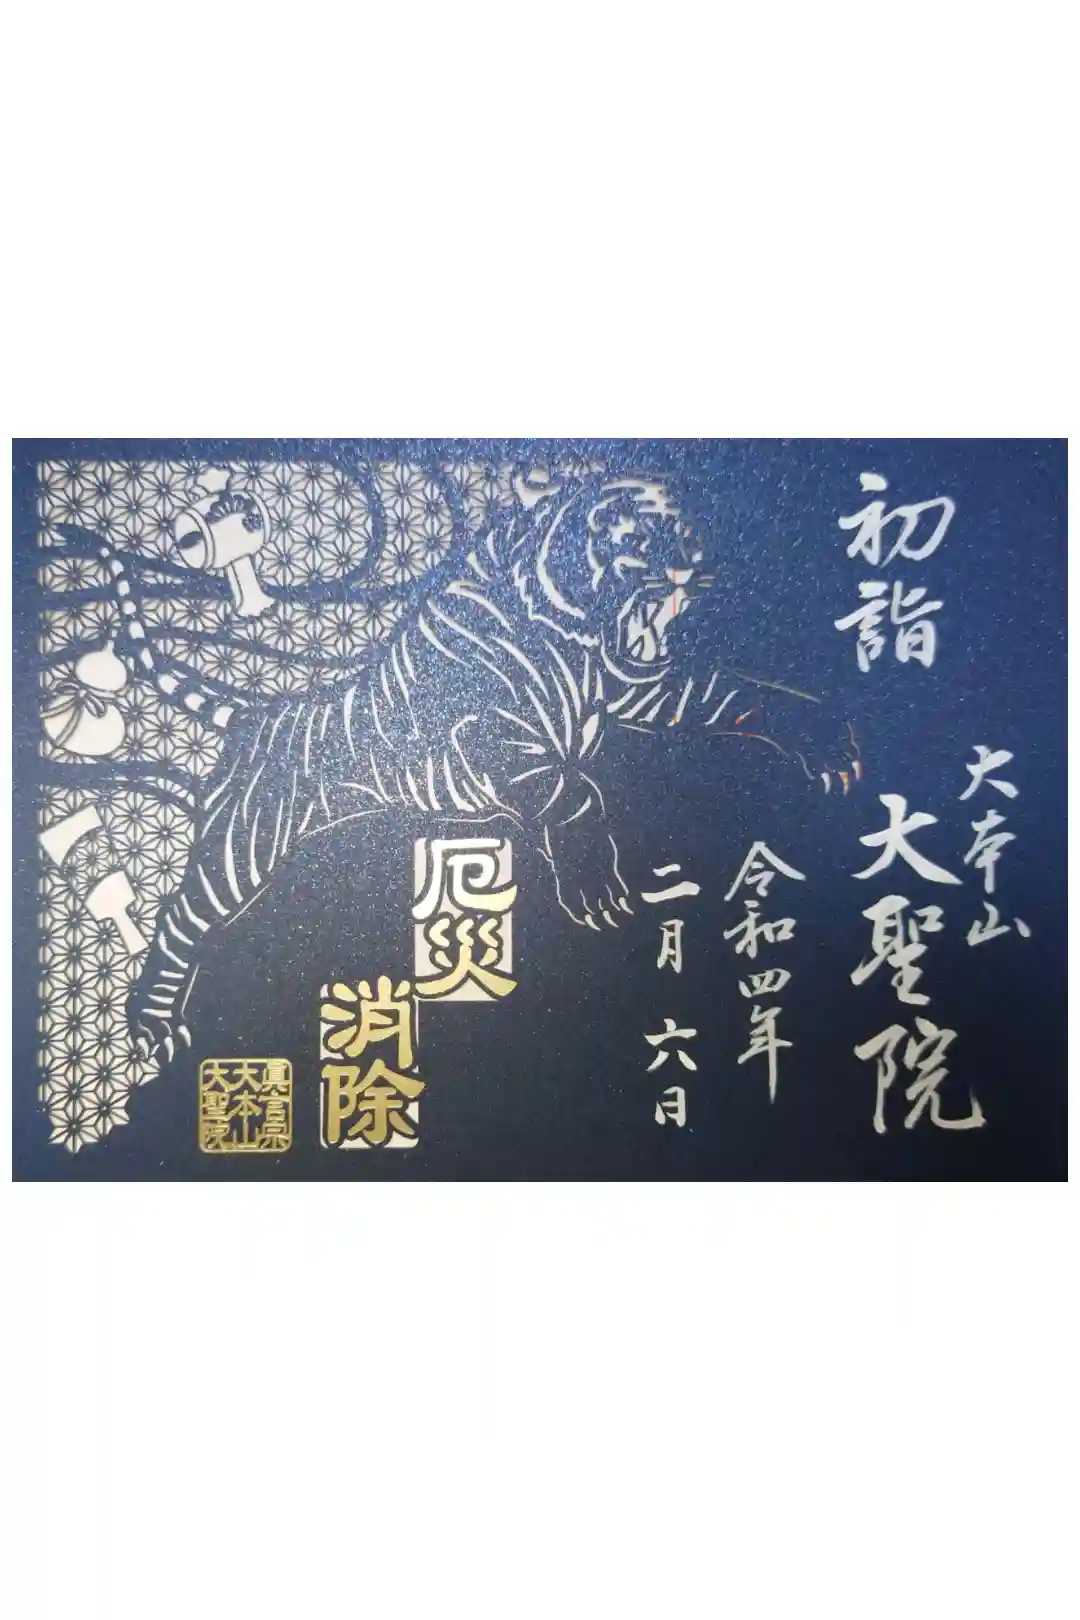 初詣
大本山
大聖院
令和四年
二月六日
厄災
消除
眞言宗
大本山
大聖院